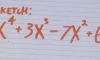 KETCH:
x⁴+3x³-7x²+6